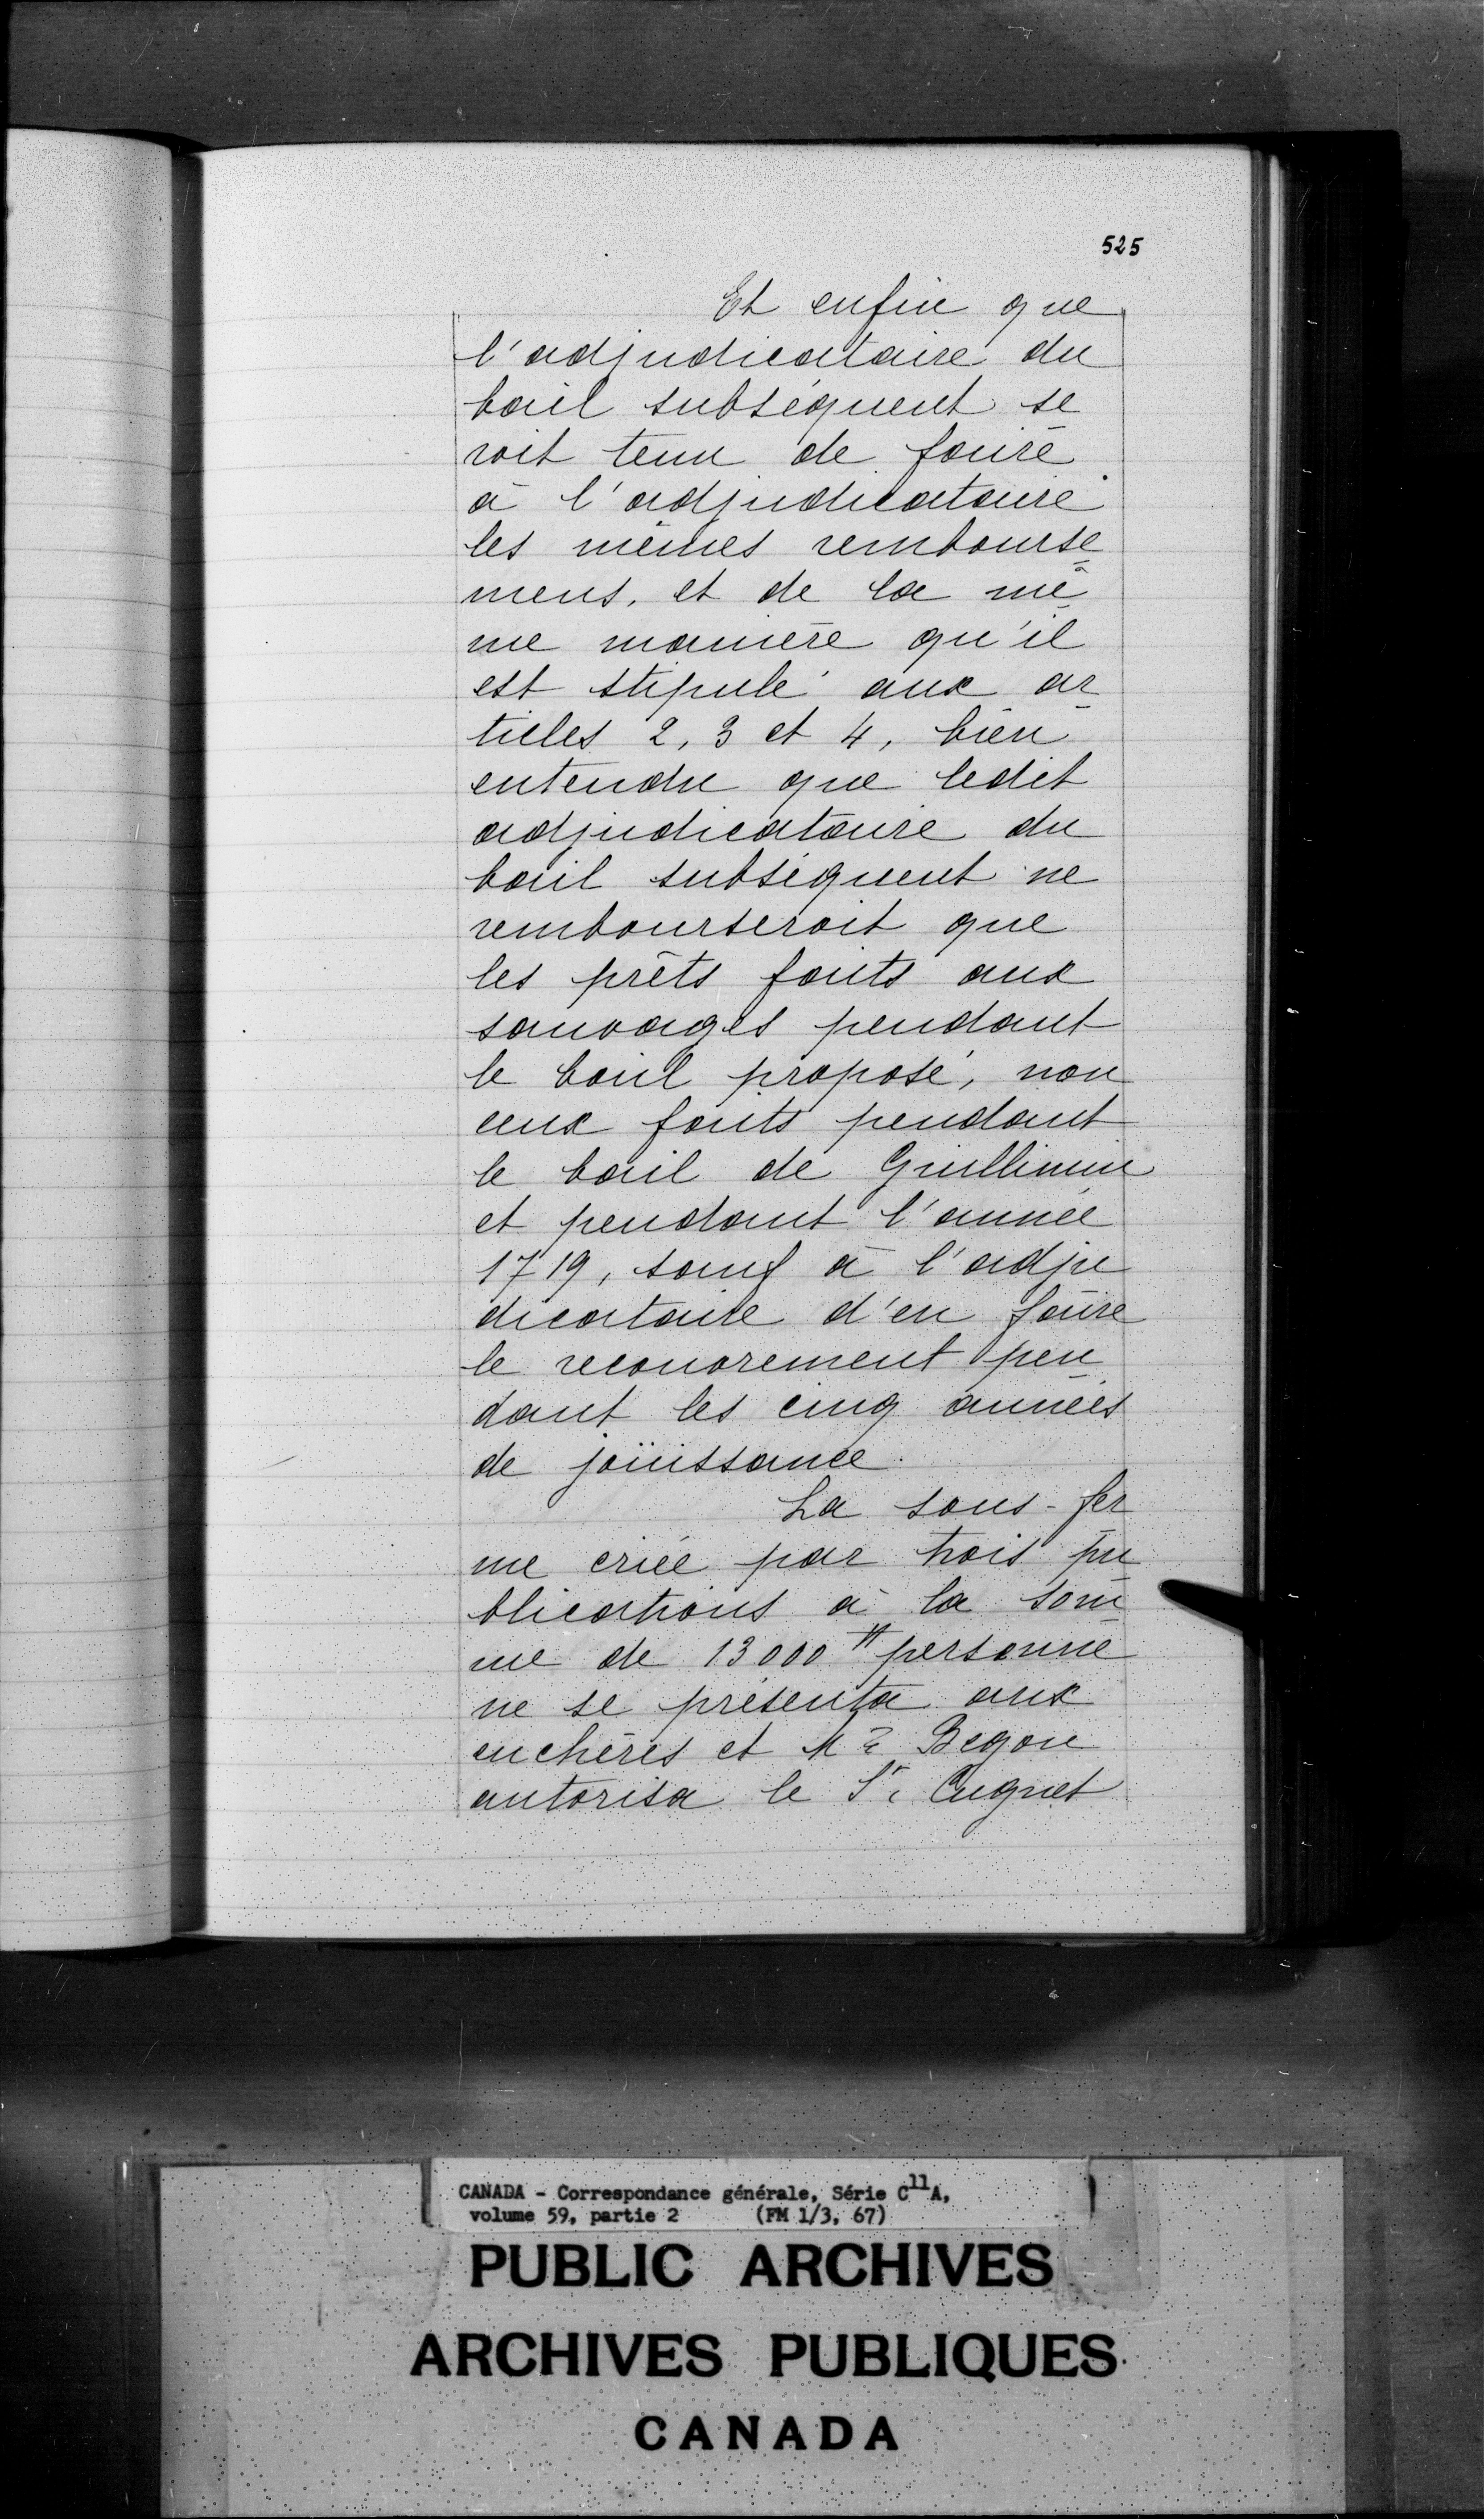 525
Et enfin que
l'adjudicataire du
bail subséquent se
roit tenu de faire
à l'adjudicataire
les mêmes rembourse
mens, et de la mê
me manière qu'il
est stipulé aux ar
ticles 2, 3 et 4, bien
entendu que ledit
adjudicataire du
bail subséquent ne
rembourseroit que
les prêts faits aux
sauvages pendant
le bail proposé, non
ceux faits pendant
le bail de Guillimin
et pendant l'année
1719, sauf à l'adju
dicataire d'en faire
le recouvrement pen
dant les cinq années
de joüissance.
La sous-fer
me criée par trois pu
blications à la som
me de 13000 ₶ personne
ne se présenta aux
enchères et Mr Begon
autorisa le Sr Cugnet
CANADA - Correspondance générale, Série C11A,
volume 59, partie 2 (FM 1/3, 67)
PUBLIC ARCHIVES
ARCHIVES PUBLIQUES
CANADA